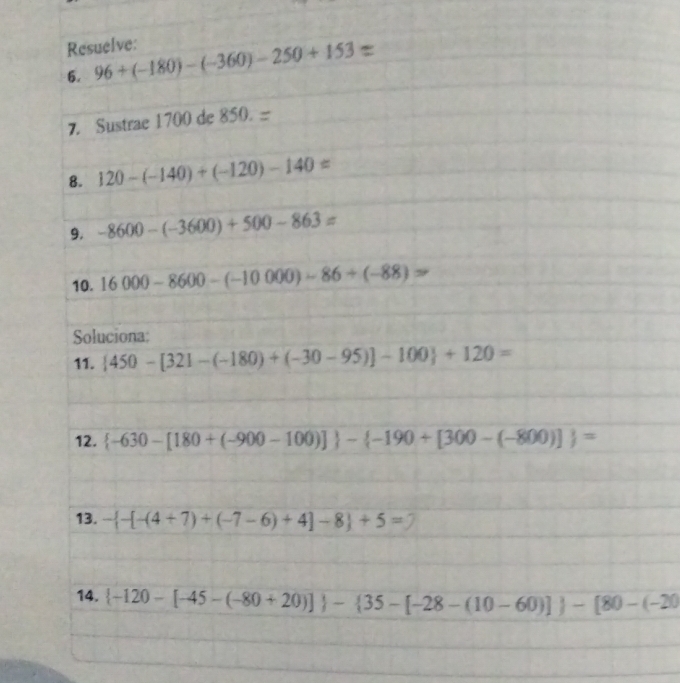 Resuelve:
6. 96 + (−180) − (−360) − 250 + 153 =
7. Sustrae 1700 de 850. =
8. 120 − (−140) + (−120) − 140 =
9. −8600 − (−3600) + 500 − 863 =
10. 16 000 − 8600 − (−10 000) − 86 + (−88) =
Soluciona:
11. {450 − [321 − (−180) + (−30 − 95)] − 100} + 120 =
12. {−630 − [180 + (−900 − 100)] } − {−190 + [300 − (−800)] } =
13. −{−[−(4 + 7) + (−7 − 6) + 4] − 8} + 5 =
14. {−120 − [−45 − (−80 + 20)] } − {35 − [−28 − (10 − 60)] } − [80 − (−20